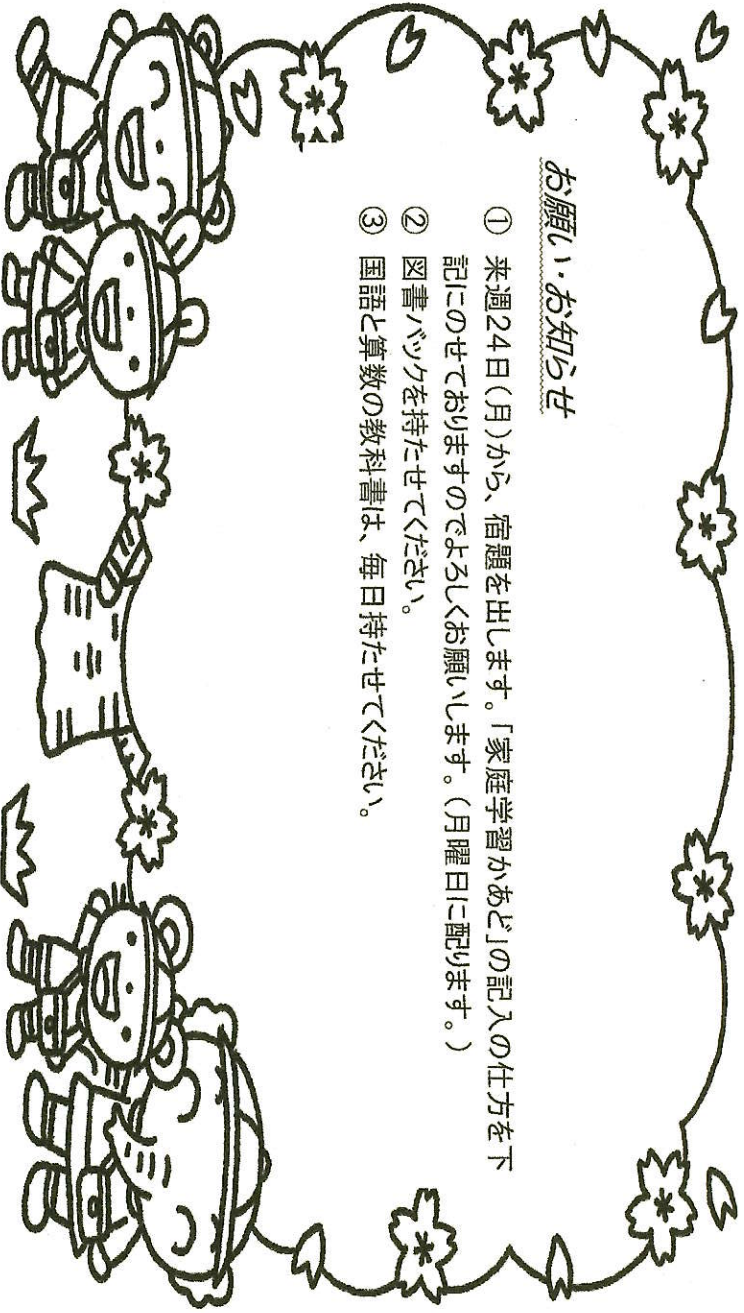 お願い・お知らせ
① 来週24日(月)から、宿題を出します。「家庭学習かあど」の記入の仕方を下
記にのせておりますのでよろしくお願いします。(月曜日に配ります。)
② 図書バックを持たせてください。
③ 国語と算数の教科書は、毎日持たせてください。